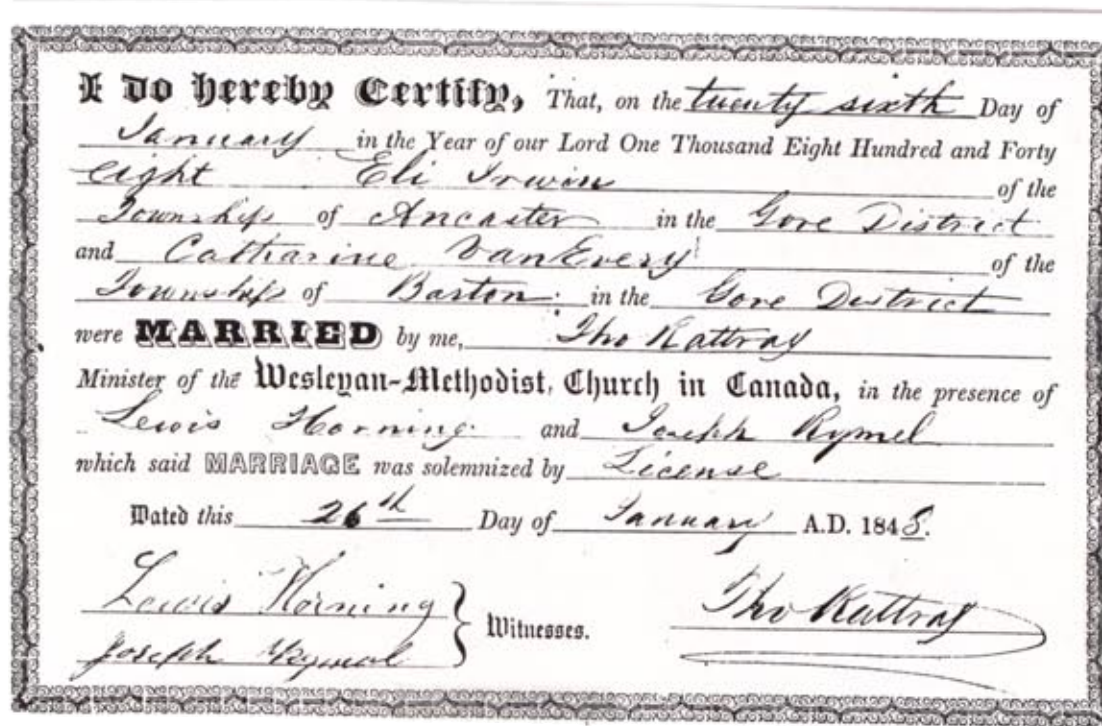 I do hereby Certify, That, on the twenty sixth Day of
January in the Year of our Lord One Thousand Eight Hundred and Forty
eight Eli Irwin of the
Township of Ancaster in the Gore District
and Catharine VanEvery of the
Township of Barton in the Gore District
were MARRIED by me, Tho Rattray
Minister of the Wesleyan-Methodist, Church in Canada, in the presence of
Lewis Horning and Joseph Rymel
which said MARRIAGE was solemnized by License
Dated this 26th Day of January A.D. 1848.
Lewis Horning
Joseph Rymal
Witnesses.
Tho Rattray